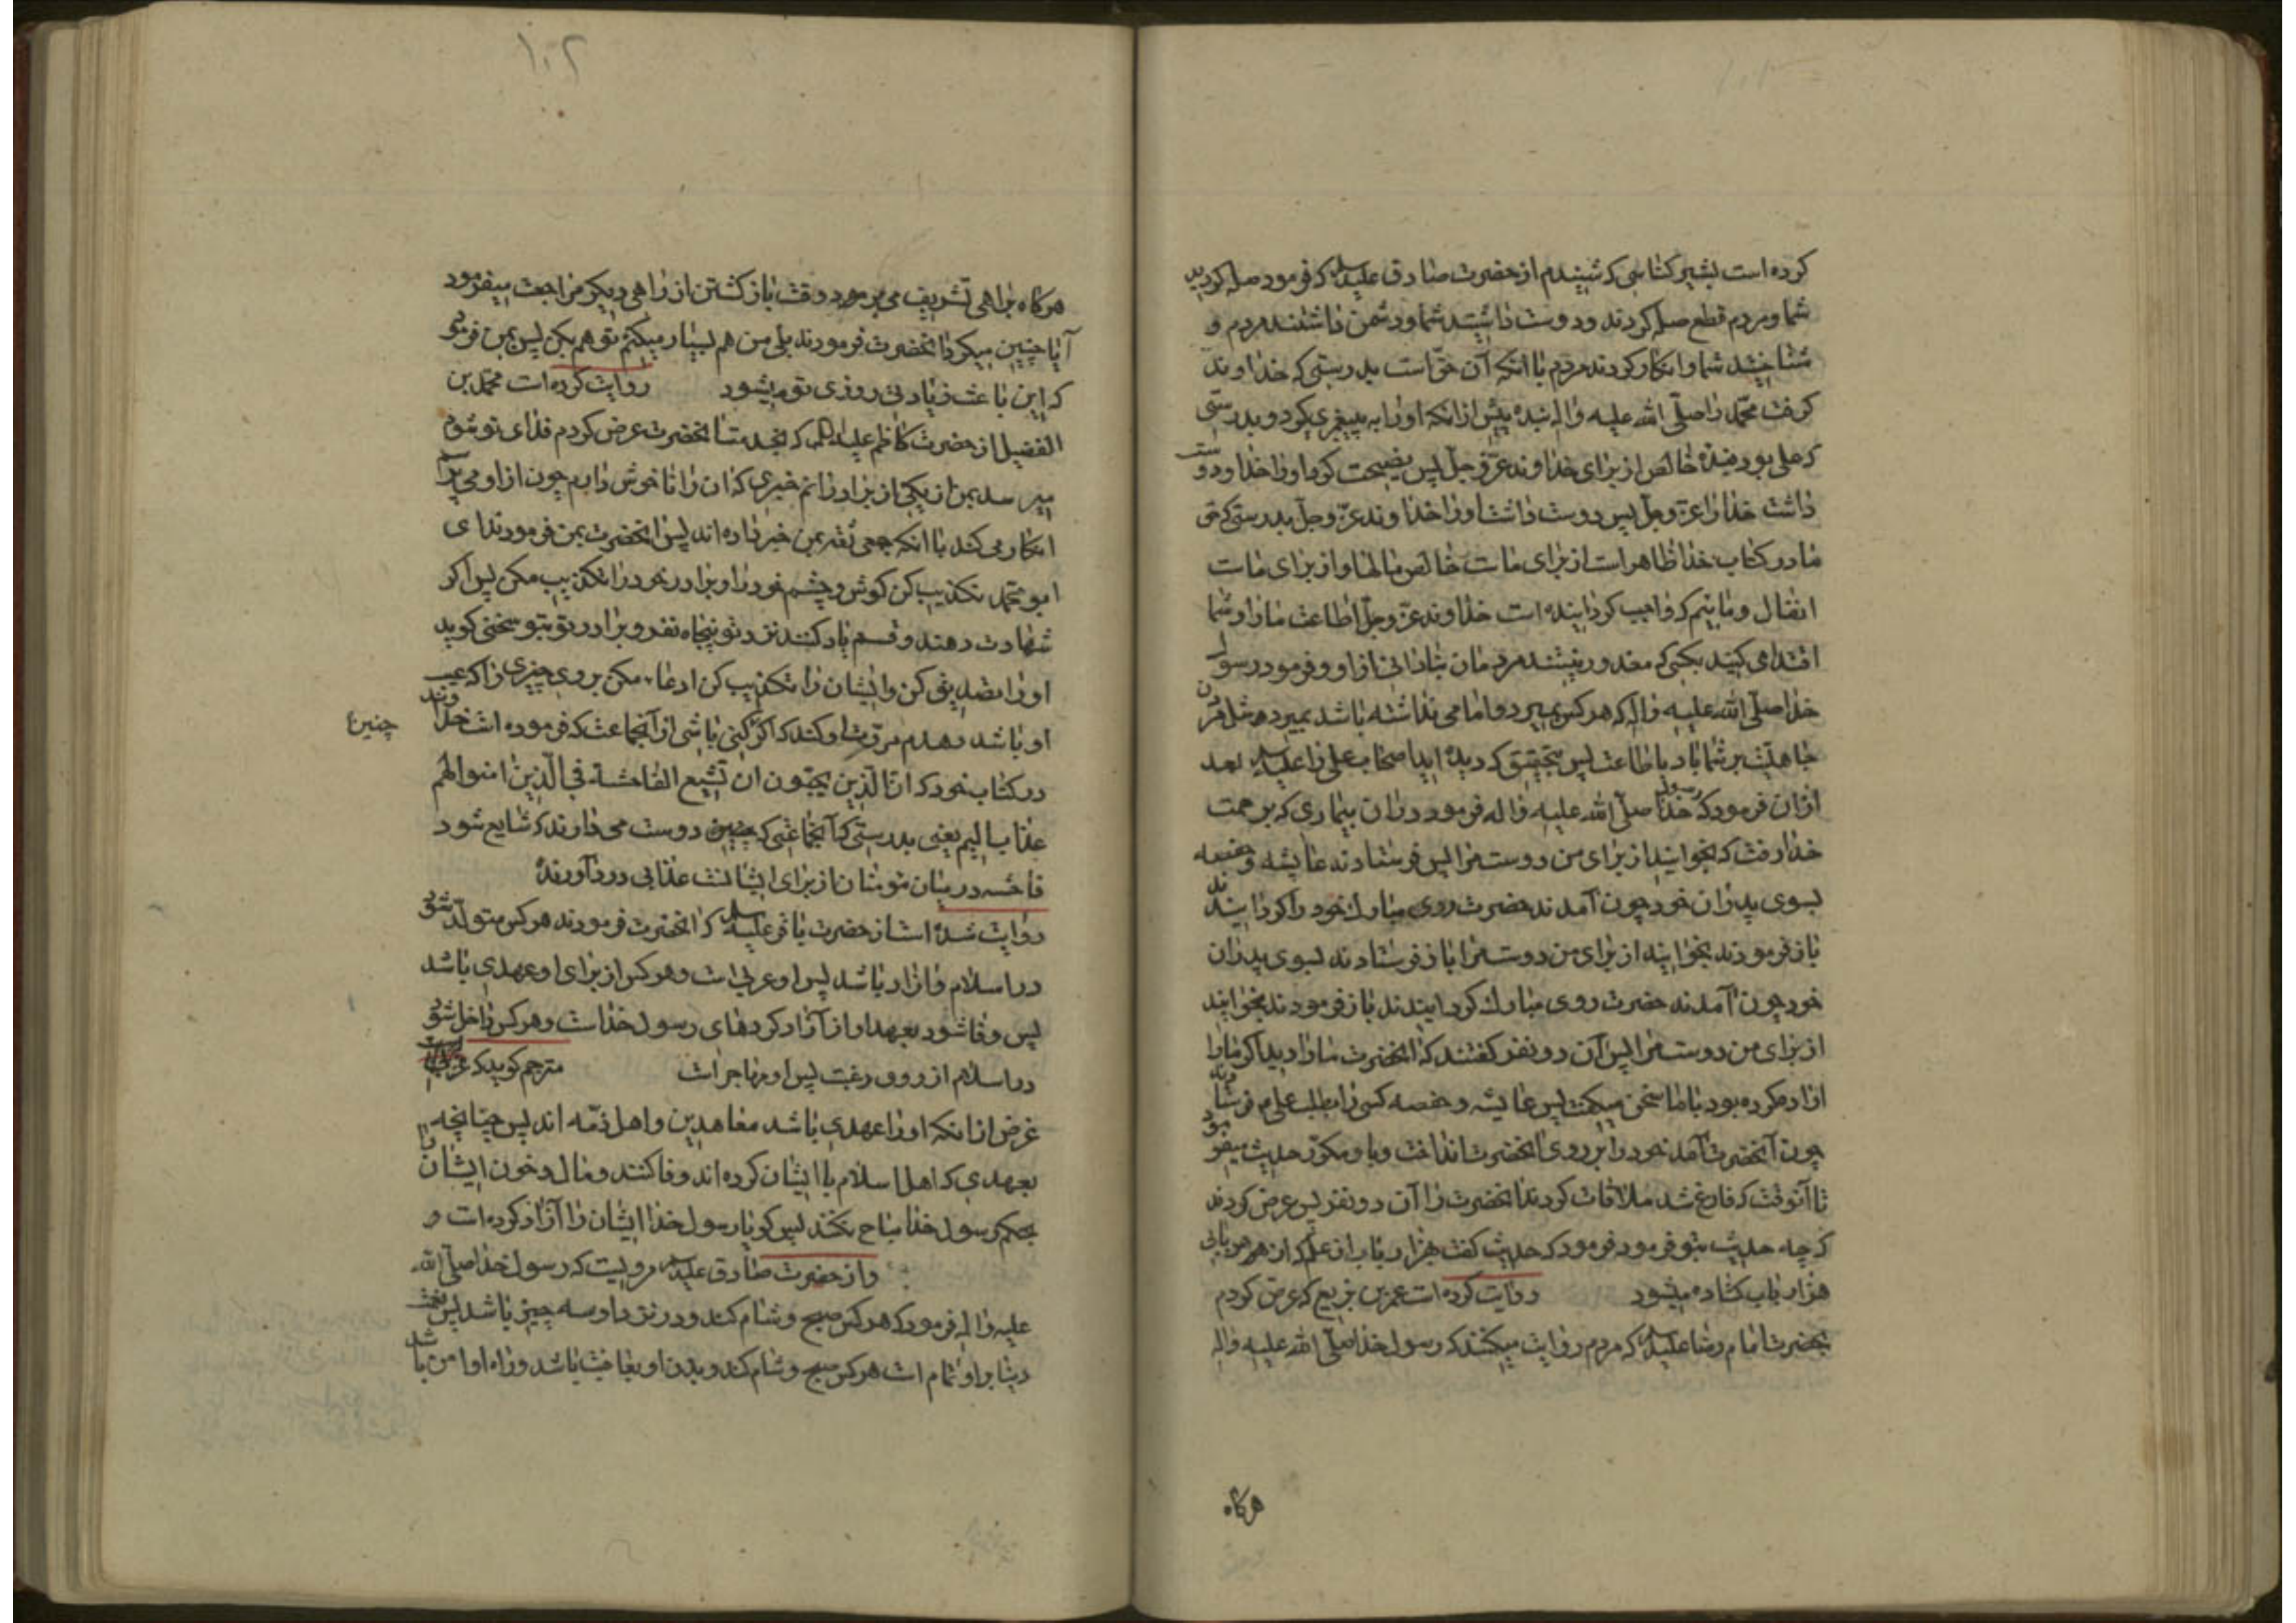 کرده است بشیر کناسی که شنیدم از حضرت صادق علیه السلام که فرمود صله کردید
شما و مردم قطع صله کردند و دوست داشتید شما و دشمن داشتند مردم و
شناختید شما و انکار کردند مردم با انکه آن حق است بدرستی که خداوند
کرفت محمد را صلی الله علیه واله بنده پیش از انکه او را به پیغمبری کیرد و بدرستی
که علی بود بنده خالص از برای خداوند عز و جل پس نصیحت کرد او را خدا و دوست
داشت خدا را عز وجل پس دوست داشت او را خداوند عز وجل بدرستی که حق
ما در کتاب خدا ظاهر است از برای ماست خالص مالها و از برای ماست
انفال و مائیم که واجب کردانیده است خداوند عز وجل اطاعت ما را و شما
اقتدا می کنید بکسی که معذور نیستند مردمان بنادانی از او و فرمود رسول
خدا صلی الله علیه واله که هر کس بمیرد و امامی نداشته باشد بمیرد مثل مردن
جاهلیت بر شما باد باطاعت پس بتحقیق که دیده اید اصحاب علی را علیه السلام بعد
ازان فرمود که رسول خدا صلی الله علیه واله فرمود دران بیماری که برحمت
خدا رفت که بخوانید از برای من دوست مرا پس فرستادند عایشه و حفصه
بسوی پدران خود چون آمدند حضرت روی مبارک خود را کردانیدند
باز فرمودند بخوانید از برای من دوست مرا باز فرستادند بسوی پدران
خود چون آمدند حضرت روی مبارک کردانیدند باز فرمودند بخوانید
از برای من دوست مرا پس آن دو نفر کفتند که انحضرت ما را دید اکر ما را
اراده کرده بود با ما سخن میکفت پس عایشه و حفصه کسی را بطلب علی ع فرستادند
چون آنحضرت آمد خود را بر روی انحضرت انداخت و باو مکرر حدیث میفرمود
تا آنوقت که فارغ شد ملاقات کردند انحضرت را آن دو نفر پس عرض کردند
که چه حدیث بتو فرمود فرمود که حدیث کفت هزار باب از علم که از هر بابی
هزار باب کشاده میشود روایت کرده است عمر بن بزیع که عرض کردم
بحضرت امام رضا علیه السلام که مردم روایت میکنند که رسول خدا صلی الله علیه واله
هرکاه
۱۰۲
هرکاه براهی تشریف می بردند وقت بازکشتن از راهی دیکر مراجعت میفرمود
آیا چنین میکرد انحضرت فرمودند بلی من هم بسیار میکنم تو هم بکن پس بمن فرمود
که این باعث زیادتی روزی تو میشود روایت کرده است محمد بن
الفضیل از حضرت کاظم علیه السلام که بخدمت انحضرت عرض کردم فدای تو شوم
میرسد بمن از یکی از برادرانم خبری که ان را ناخوش دارم چون از او می پرسم
انکار می کند با انکه جمعی ثقه بمن خبر داده اند پس انحضرت بمن فرمودند ای
ابو محمد تکذیب کن کوش و چشم خود را و برادر خود را تکذیب مکن پس اکر
شهادت دهند و قسم یاد کنند نزد تو پنجاه نفر و برادر تو بتو سخنی کوید
او را تصدیق کن و ایشان را تکذیب کن ادعاء مکن بروی چیزی را که عیب
او باشد و هدم مروت او کند که اکر کنی باشی از آنجماعت که فرموده است خداوند
چنین ع
در کتاب خود که ان الذین یحبون ان تشیع الفاحشة فی الذین امنوا لهم
عذاب الیم یعنی بدرستی که آنجماعتی که چنین دوست می دارند که شایع شود
فاحشه در میان مؤمنان از برای ایشانست عذابی درد آورنده
روایت شده است از حضرت باقر علیه السلام که انحضرت فرمودند هر کس متولد شود
در اسلام و ازاد باشد پس او عربی است و هر کس از برای او عهدی باشد
پس وفا شود بعهد او از آزاد کردهای رسول خداست و هر کس داخل شود
در اسلام از روی رغبت پس او مهاجر است مترجم کوید که
غرض از انکه او را عهدی باشد معاهدین و اهل ذمه اند پس چنانچه
بعهدی که اهل اسلام با ایشان کرده اند وفا کنند و مال و خون ایشان را
بحکم رسول خدا مباح نکنند پس کویا رسول خدا ایشان را آزاد کرده است و
و از حضرت صادق علیه السلام مرویست که رسول خدا صلی الله
علیه واله فرمود که هر کس صبح و شام کند و در نزد او سه چیز باشد پس نعمت
دنیا بر او تمام است هر کس صبح و شام کند و بدن او بعافیت باشد و راه او امن باشد